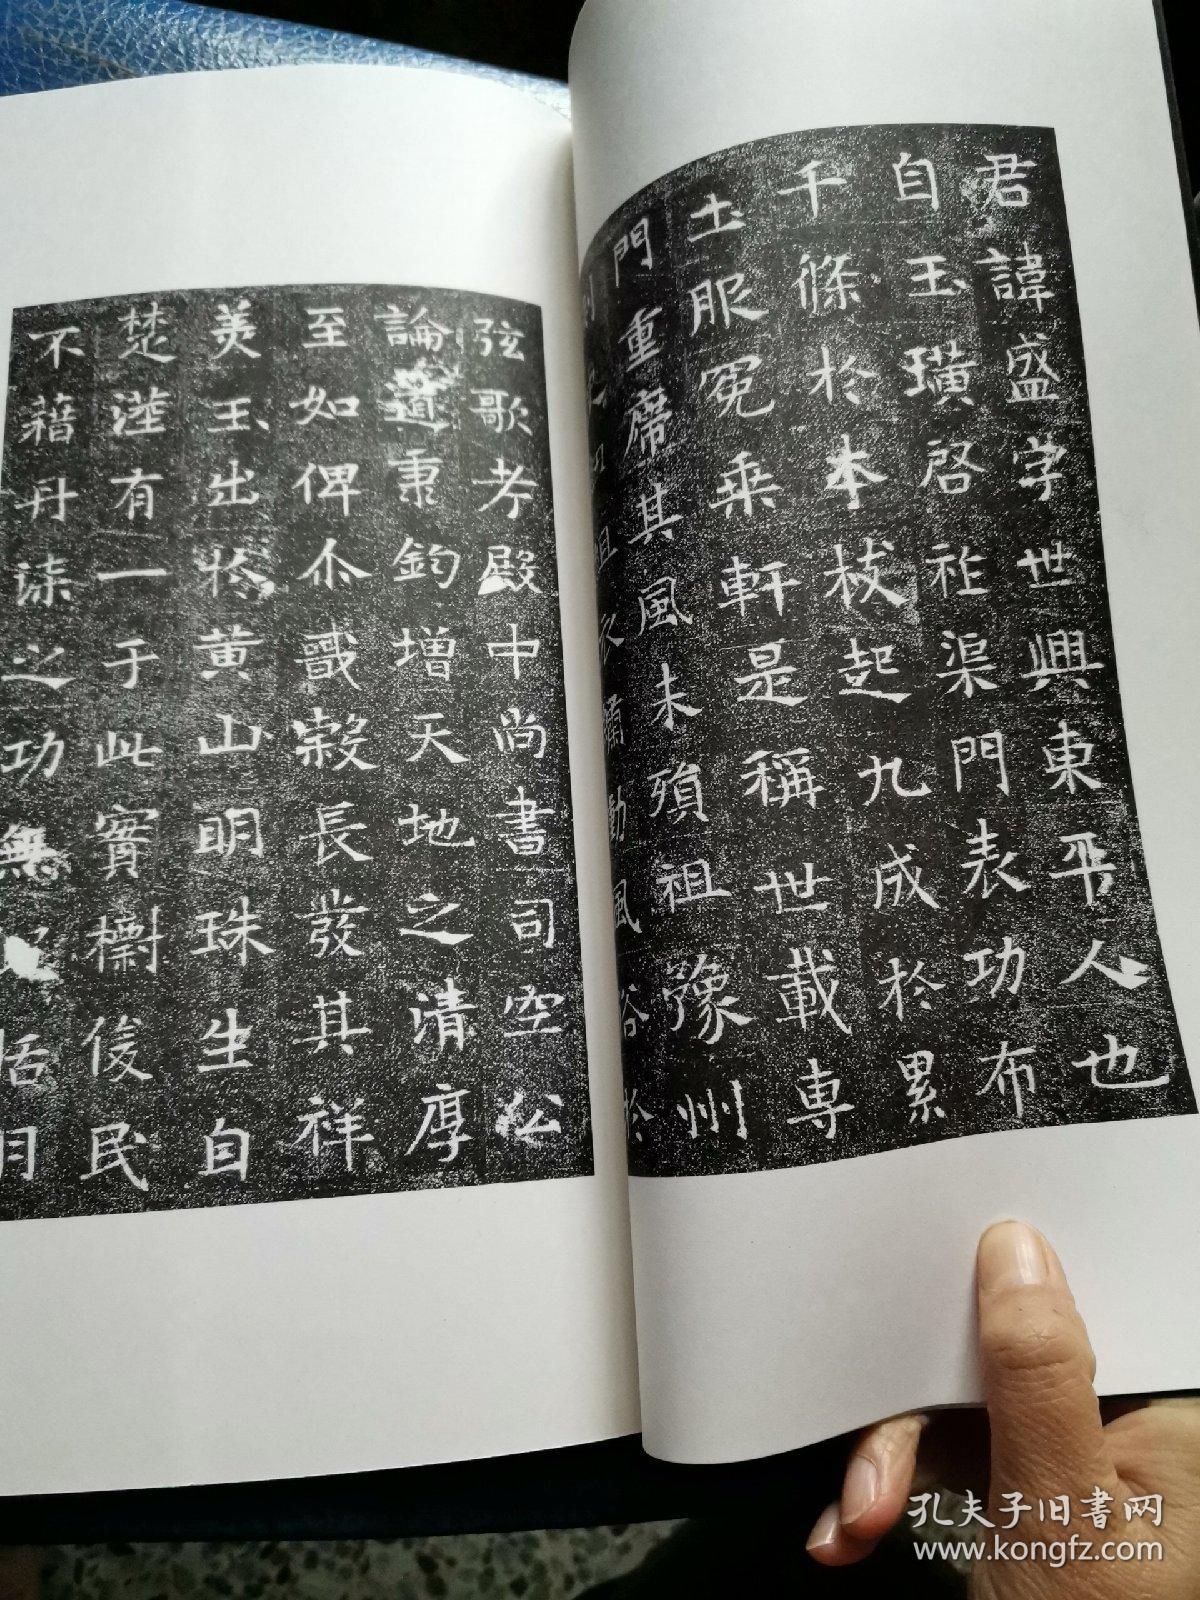 君諱盛字世興東平人也
自玉璜启祚渠門表功布
千條於本枝起九成於累
土服冕乗軒是稱世載専
門重席其風未殞祖豫州
祖
風
於
弦歌孝殿中尚書司空公
論道秉鈞增天地之清厚
至如俾尒戩穀長發其祥
美玉出扵黄山明珠生自
楚澨有一于此實欝㑺民
不藉丹漆之功無
括
孔夫子旧書网
www.kongfz.com